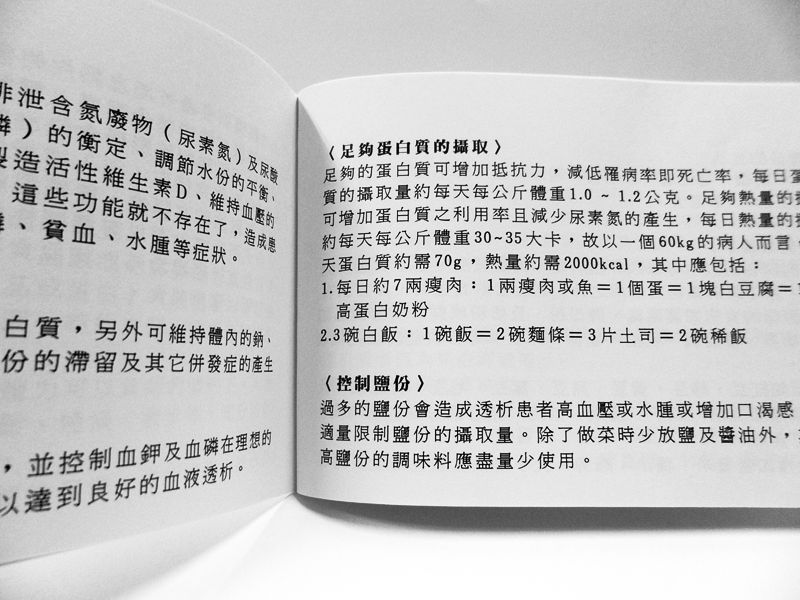 排泄含氮廢物（尿素氮）及尿酸
磷）的衡定、調節水份的平衡、
製造活性維生素D、維持血壓的
這些功能就不存在了，造成患
、貧血、水腫等症狀。
白質，另外可維持體內的鈉、
份的滯留及其它併發症的產生
，並控制血鉀及血磷在理想的
以達到良好的血液透析。
〈足夠蛋白質的攝取〉
足夠的蛋白質可增加抵抗力，減低罹病率即死亡率，每日蛋
質的攝取量約每天每公斤體重1.0 ~ 1.2公克。足夠熱量的攝
可增加蛋白質之利用率且減少尿素氮的產生，每日熱量的攝
約每天每公斤體重30~35大卡，故以一個60kg的病人而言，
天蛋白質約需70g，熱量約需2000kcal，其中應包括：
1.每日約7兩瘦肉：1兩瘦肉或魚＝1個蛋＝1塊白豆腐＝1
高蛋白奶粉
2.3碗白飯：1碗飯＝2碗麵條＝3片土司＝2碗稀飯
〈控制鹽份〉
過多的鹽份會造成透析患者高血壓或水腫或增加口渴感，
適量限制鹽份的攝取量。除了做菜時少放鹽及醬油外，
高鹽份的調味料應盡量少使用。